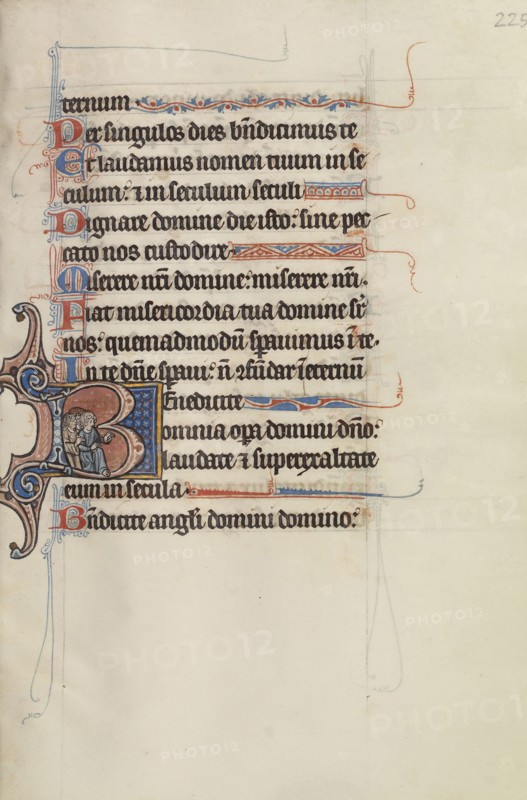 225
ternum.
Per singulos dies bndicimus te
Et laudamus nomen tuum in se
culum: ⁊ in seculum seculi
Dignare domine die isto: sine pec
cato nos custodire
Miserere nri domine: miserere nri.
Fiat misericordia tua domine sr
nos: quemadmodũ spauimus ĩ te.
In te dñe spaui: ñ ꝯfũdar ĩ eternũ
Benedicite
omnia oꝑa domini dño:
laudate ⁊ superexaltate
eum in secula.
Bndicite angli domini domino:
PHOTO12